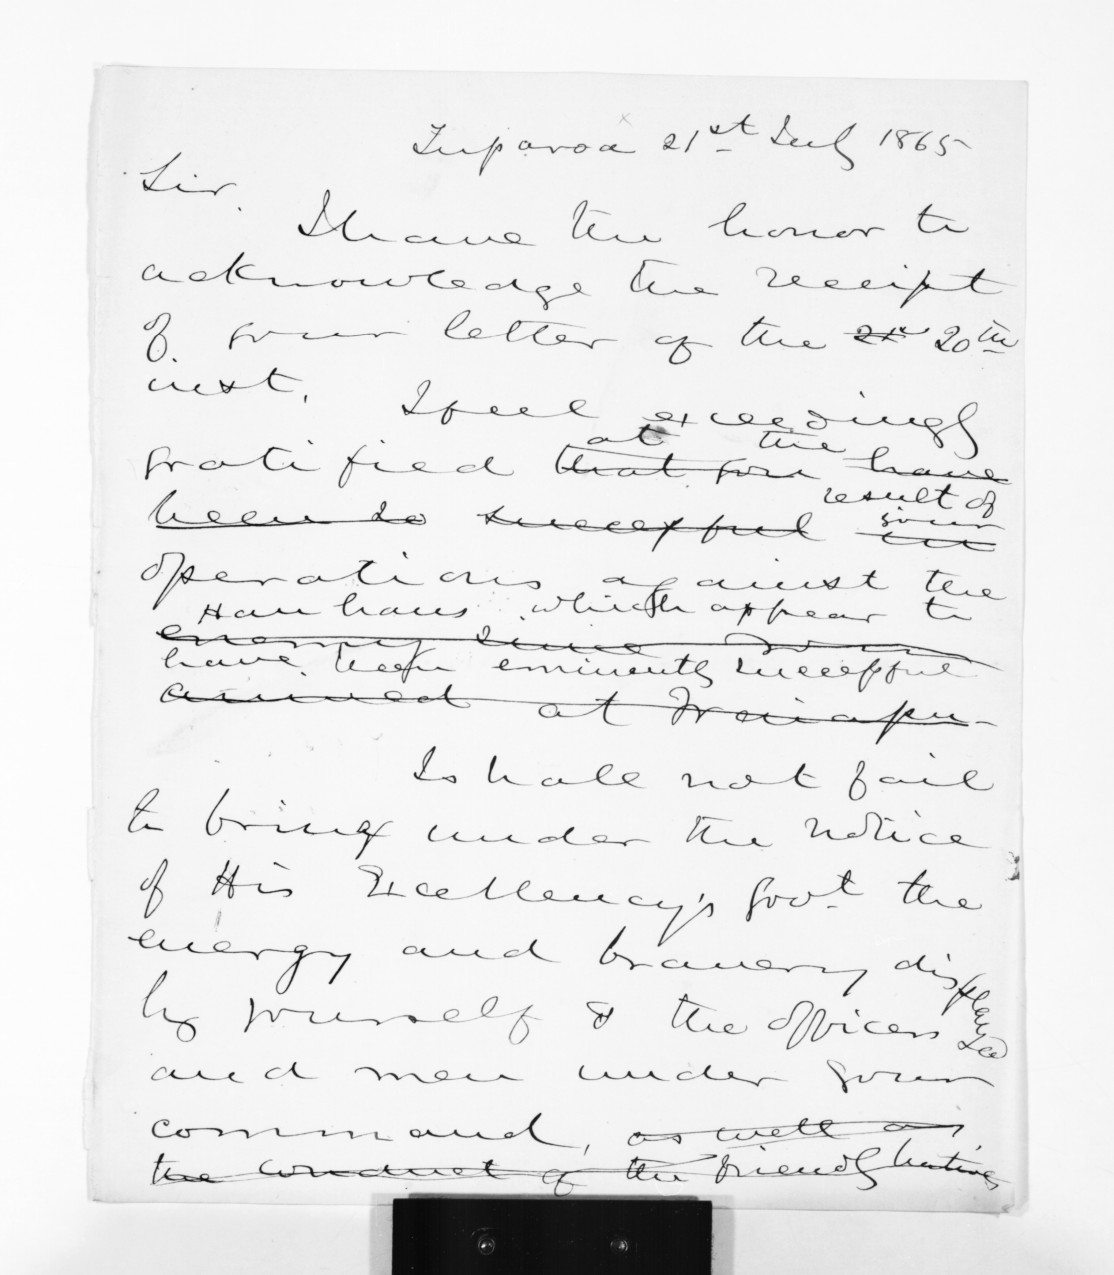 Tuparoa 21st July 1865
Sir.
I have the honor to
acknowledge the receipt
of your letter of the 21st 20th
inst. I feel exceedingly
at the
gratified that you have
result of
been so successful in
your
operations against the
Hau haus which appear to
enemy since you
have been eminently successful
arrived at Waiapu
I shall not fail
to bring under the notice
of His Excellency's Govt. the
energy and bravery displayed
by yourself & the officers
and men under your
command, as well as
the conduct of the friendly natives